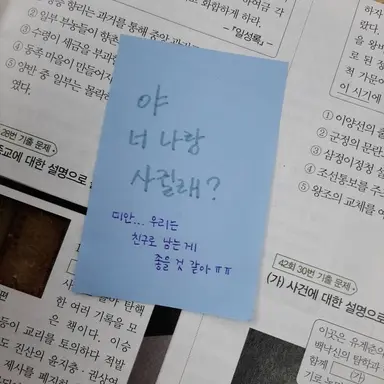 향리는 과거를 통해
② 일부 부농들이 향촌
③ 수령이 세금을 부과
④ 동족 마을이 만들어지
⑤ 양반 중 일부는 몰락하
였다.
화합하게 하라.
- 『일성록』 -
야
너 나랑
사귈래?
미안... 우리는
친구로 남는 게
좋을 것 같아 ㅠㅠ
① 이양선의
② 군정의 문란
③ 삼정이정청 설
④ 조선통보를 주
⑤ 왕조의 교체를 예
28번 기출 문제
종교에 대한 설명으로
한 여러 기록을 모
은 책이다. 이승
등이 교리를 토의하다 적발
도 진산의 윤지충·권상연
제사를 폐지하
42회 30번 기출 문제
(가) 사건에 대한 설명으로
이곳은 유계춘의
백낙신의 탐학과
함께 (가)